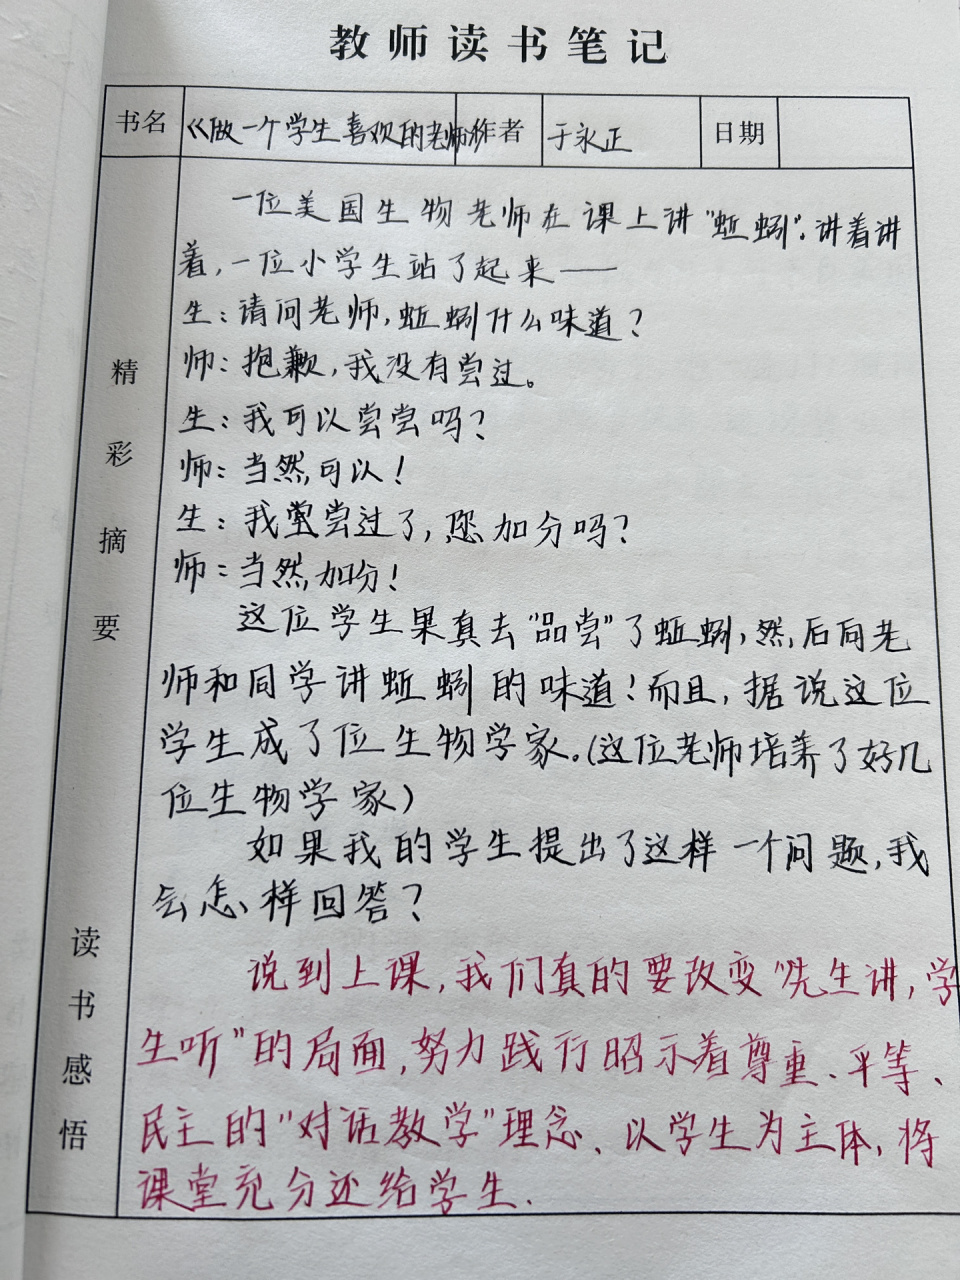 教师读书笔记
书名 《做一个学生喜欢的老师》 作者 于永正 日期
精彩摘要
一位美国生物老师在课上讲"蚯蚓"。讲着讲
着,一位小学生站了起来——
生:请问老师,蚯蚓什么味道?
师:抱歉,我没有尝过。
生:我可以尝尝吗?
师:当然可以!
生:我尝过了,您加分吗?
师:当然加分!
这位学生果真去"品尝"了蚯蚓,然后向老
师和同学讲蚯蚓的味道!而且,据说这位
学生成了位生物学家。(这位老师培养了好几
位生物学家)
如果我的学生提出了这样一个问题,我
会怎样回答?
读书感悟
说到上课,我们真的要改变"先生讲,学
生听"的局面,努力践行昭示着尊重、平等、
民主的"对话教学"理念、以学生为主体,将
课堂充分还给学生.